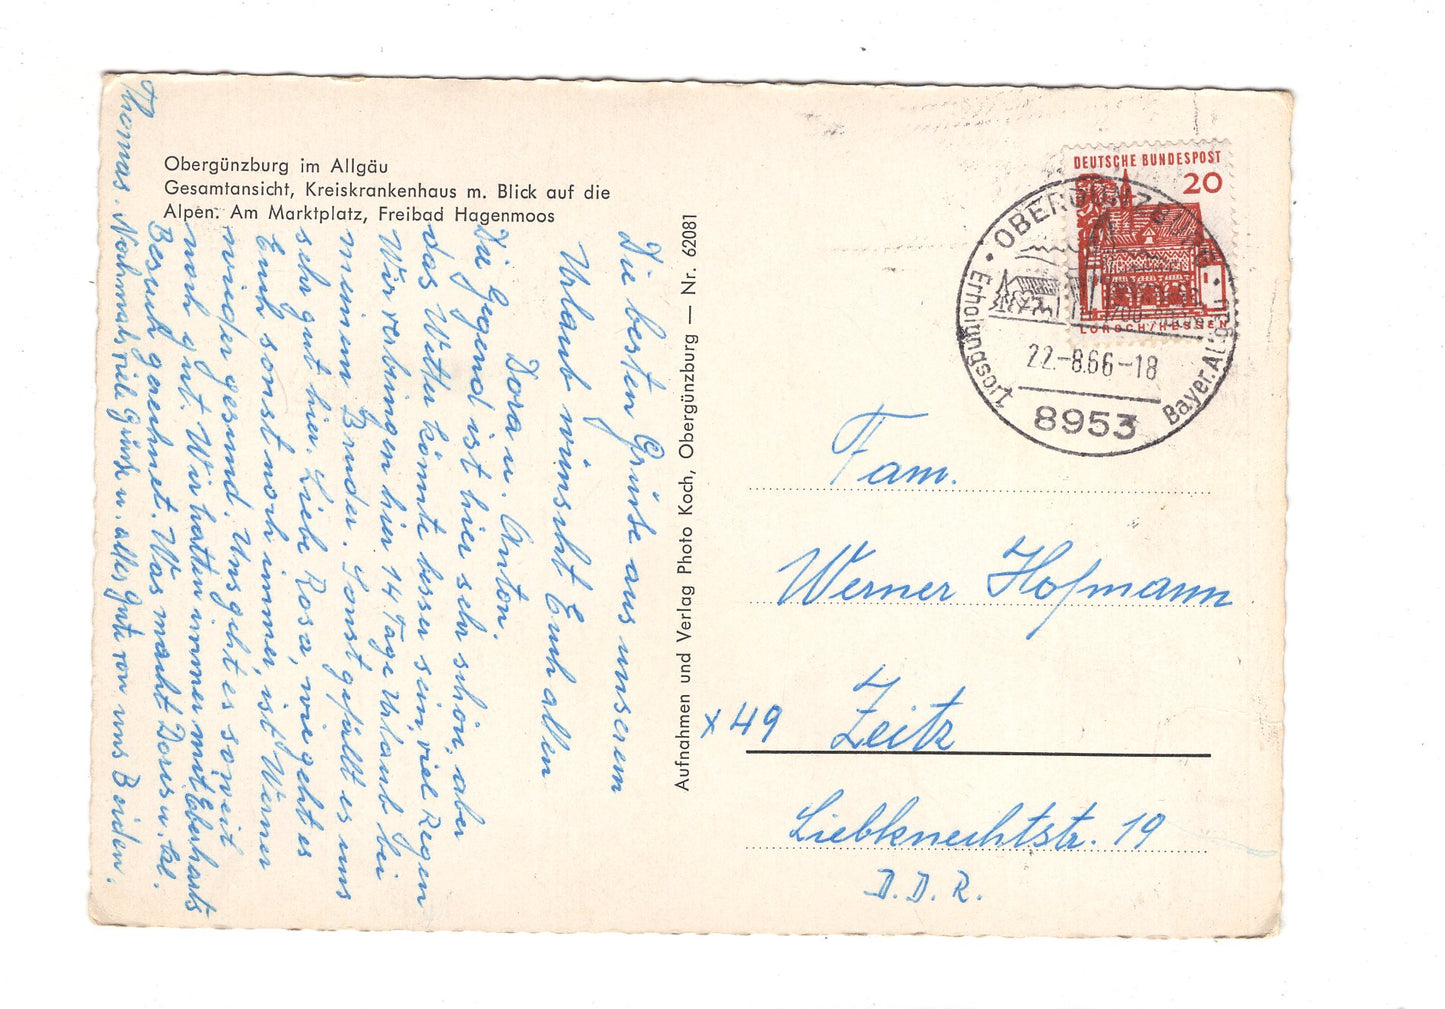 Obergünzburg im Allgäu
Gesamtansicht, Kreiskrankenhaus m. Blick auf die
Alpen. Am Marktplatz, Freibad Hagenmoos
Die besten Grüße aus unserem
Urlaub wünscht Euch allen
Dora u. Anton.
Die Gegend ist hier sehr schön, aber
das Wetter könnte besser sein, viel Regen
Wir verbringen hier 14 Tage Urlaub bei
meinem Bruder. Sonst gefällt es uns
sehr gut hier. Liebe Rosa, wie geht es
Euch sonst noch immer, ist Werner
wieder gesund. Uns geht es soweit
noch gut. Wir hatten immer mit Eberharts
Besuch gerechnet. Was macht Doris u. kl.
Thomas. Nochmals viele Grüße u. alles Gute von uns Beiden.
Aufnahmen und Verlag Photo Koch, Obergünzburg — Nr. 62081
DEUTSCHE BUNDESPOST
20
LORSCH/HESSEN
OBERGÜNZBURG
Erholungsort
Bayer. Allgäu
22.-8.66-18
8953
Fam.
Werner Hofmann
x 49 Zeitz
Liebknechtstr. 19
D.D.R.